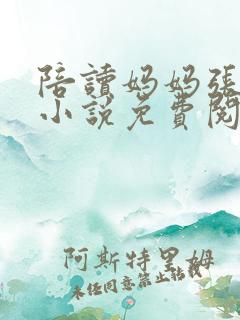 陪讀妈妈張
小説免費閱
阿斯特里姆
未经同意禁止转载